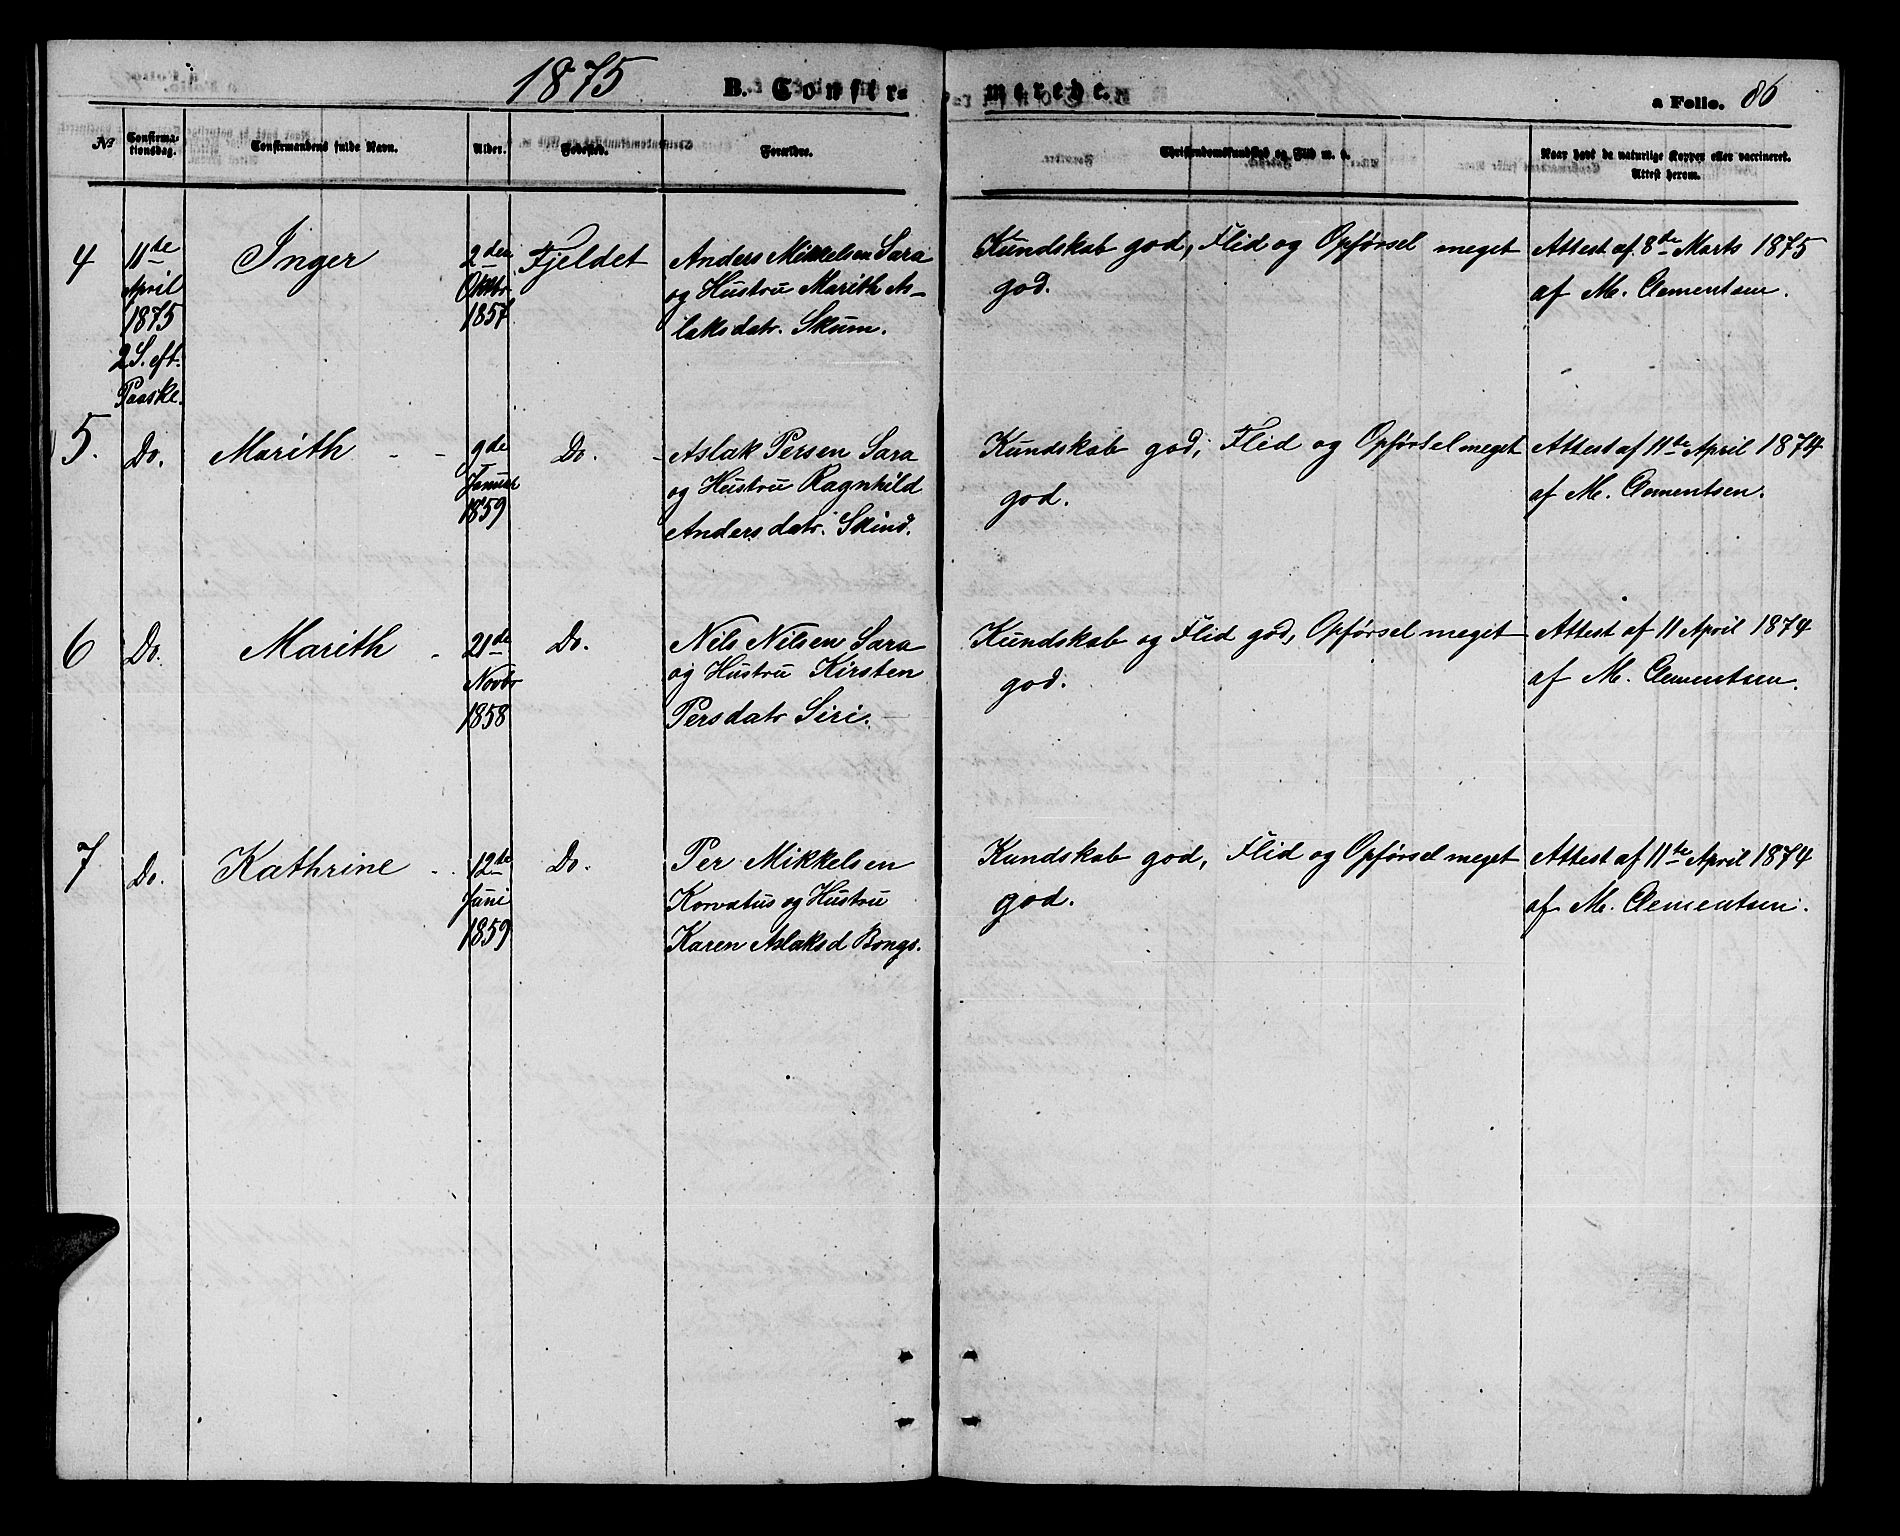 1875 B. Confir= merede. a Folio. 86
№ Confirma-
tionsdag. Confirmandens fulde Navn. Alder. Fødested. Forældre. Christendomskundskab og Flid m. v. Naar havt de naturlige Kopper eller vaccineret.
Attest herom.
4 11te
April
1875
2 S. eft.
Paaske.
Inger
2den
Oktbr
1857
Fjeldet
Anders Mikkelsen Sara
og Hustru Marith As-
laksdatr. Skum.
Kundskab god, Flid og Opførsel meget
god.
Attest af 8de Marts 1875
af M. Clementsen.
5. Do. Marith - -
9de
Januar
1859
Do. -
Aslak Persen Sara
og Hustru Ragnhild
Andersdatr. Skind.
Kundskab god, Flid og Opførsel meget
god.
Attest af 11te April 1874
af M. Clementsen.
6 Do. Marith -
21de
Novbr
1858
Do.
Nils Nilsen Sara
og Hustru Kirsten
Persdatr Siri.
Kundskab og Flid god, Opførsel meget
god.
Attest af 11 April 1874
af M. Clementsen.
7 Do. Kathrine - -
12te
Juni
1859
Do.
Per Mikkelsen
Korvatus og Hustru
Karen Aslaksd Bongs.
Kundskab god, Flid og Opførsel meget
god.
Attest af 11te April 1874
af M. Clementsen.